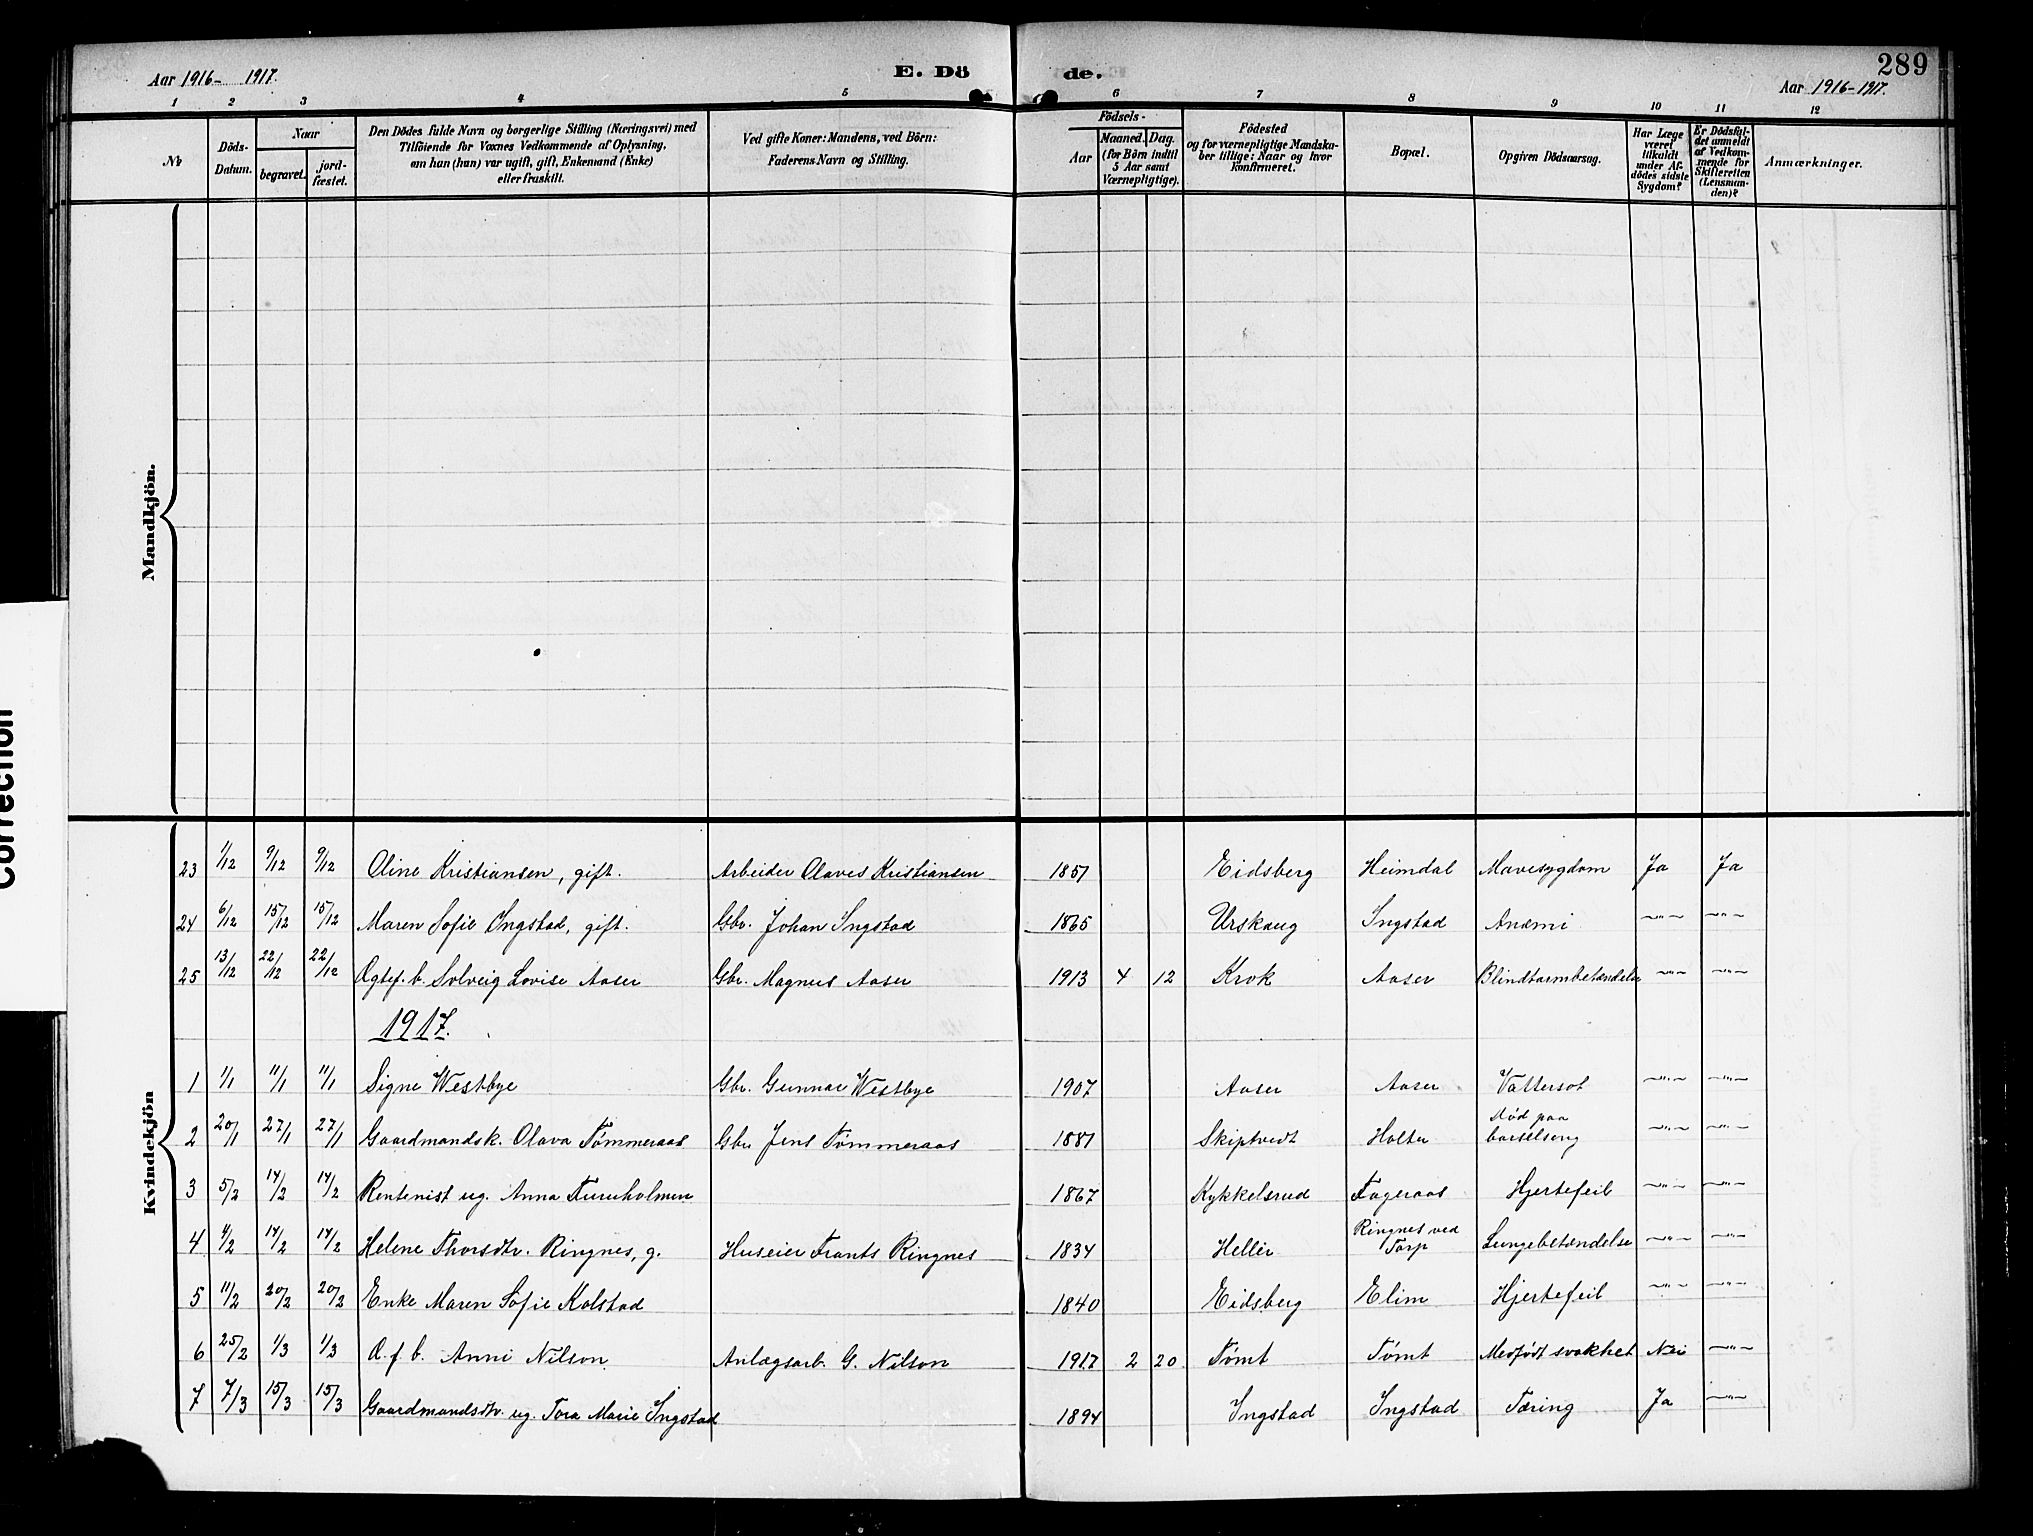 Aar 1916- 1917.
E. Döde.
289
Aar 1916-1917.
1 2 3 4 5 6 7 8 9 10 11 12
No
Döds-Datum.
Naar
begravet.
jord-fæstet.
Den Dödes fulde Navn og borgerlige Stilling (Næringsvei) med
Tilföiende for Voxnes Vedkommende af Oplysning,
om han (hun) var ugift, gift, Enkemand (Enke)
eller fraskilt.
Ved gifte Koner: Mandens, ved Börn:
Faderens Navn og Stilling.
Födsels-
Aar
Maaned. Dag.
(for Börn indtil
5 Aar samt
Værnepligtige).
Födested
og for værnepligtige Mandska-
ber tillige: Naar og hvor
konfirmeret.
Bopæl.
Opgiven Dödsaarsag.
Har Læge
været
tilkaldt
under Af-
dödes sidste
Sygdom?
Er Dödsfal-
det anmeldt
af Vedkom-
mende for
Skifteretten
(Lensman-
den)?
Anmærkninger.
Mandkjön.
Kvindekjön
23 1/12 9/12 9/12 Oline Kristiansen, gift. Arbeider Olaves Kristiansen 1851 Eidsberg Heimdal Mavesygdom Ja Ja
24 6/12 15/12 15/12 Maren Sofie Ingstad, gift. Gbr. Johan Ingstad 1865 Urskaug Ingstad Anæmi —"— —"—
25 13/12 22/12 22/12 Ægtef. b. Solveig Lovise Aaser Gbr. Magnus Aaser 1913 4 12 Krok Aaser Blindtarmbetændelse —"— —"—
1917.
1 1/1 11/1 11/1 Signe Westbye Gbr. Gunnar Westbye 1907 Aaser Aaser Vattersot —"— —"—
2 20/1 27/1 27/1 Gaardmandsk. Olava Tømmeraas Gbr. Jens Tømmeraas 1881 Skiptvedt Holter Død paa barselseng —"— —"—
3 5/2 14/2 14/2 Rentenist ug. Anna Furuholmen 1867 Kykkelsrud Fageraas Hjertefeil —"— —"—
4 4/2 14/2 14/2 Helene Thorsdtr. Ringnes, g. Huseier Frants Ringnes 1834 Hellér Ringnes ved Torp Lungebetændelse —"— —"—
5 11/2 20/2 20/2 Enke Maren Sofie Kolstad 1840 Eidsberg Elim Hjertefeil —"— —"—
6 25/2 1/3 1/3 Æ. f. b. Anni Nilson Anlægsarb. G. Nilson 1917 2 20 Tømt Tømt Medfødt svakhet Nei —"—
7 7/3 15/3 15/3 Gaardmandsdtr. ug. Tora Marie Ingstad 1894 Ingstad Ingstad Tæring Ja —"—
Correction